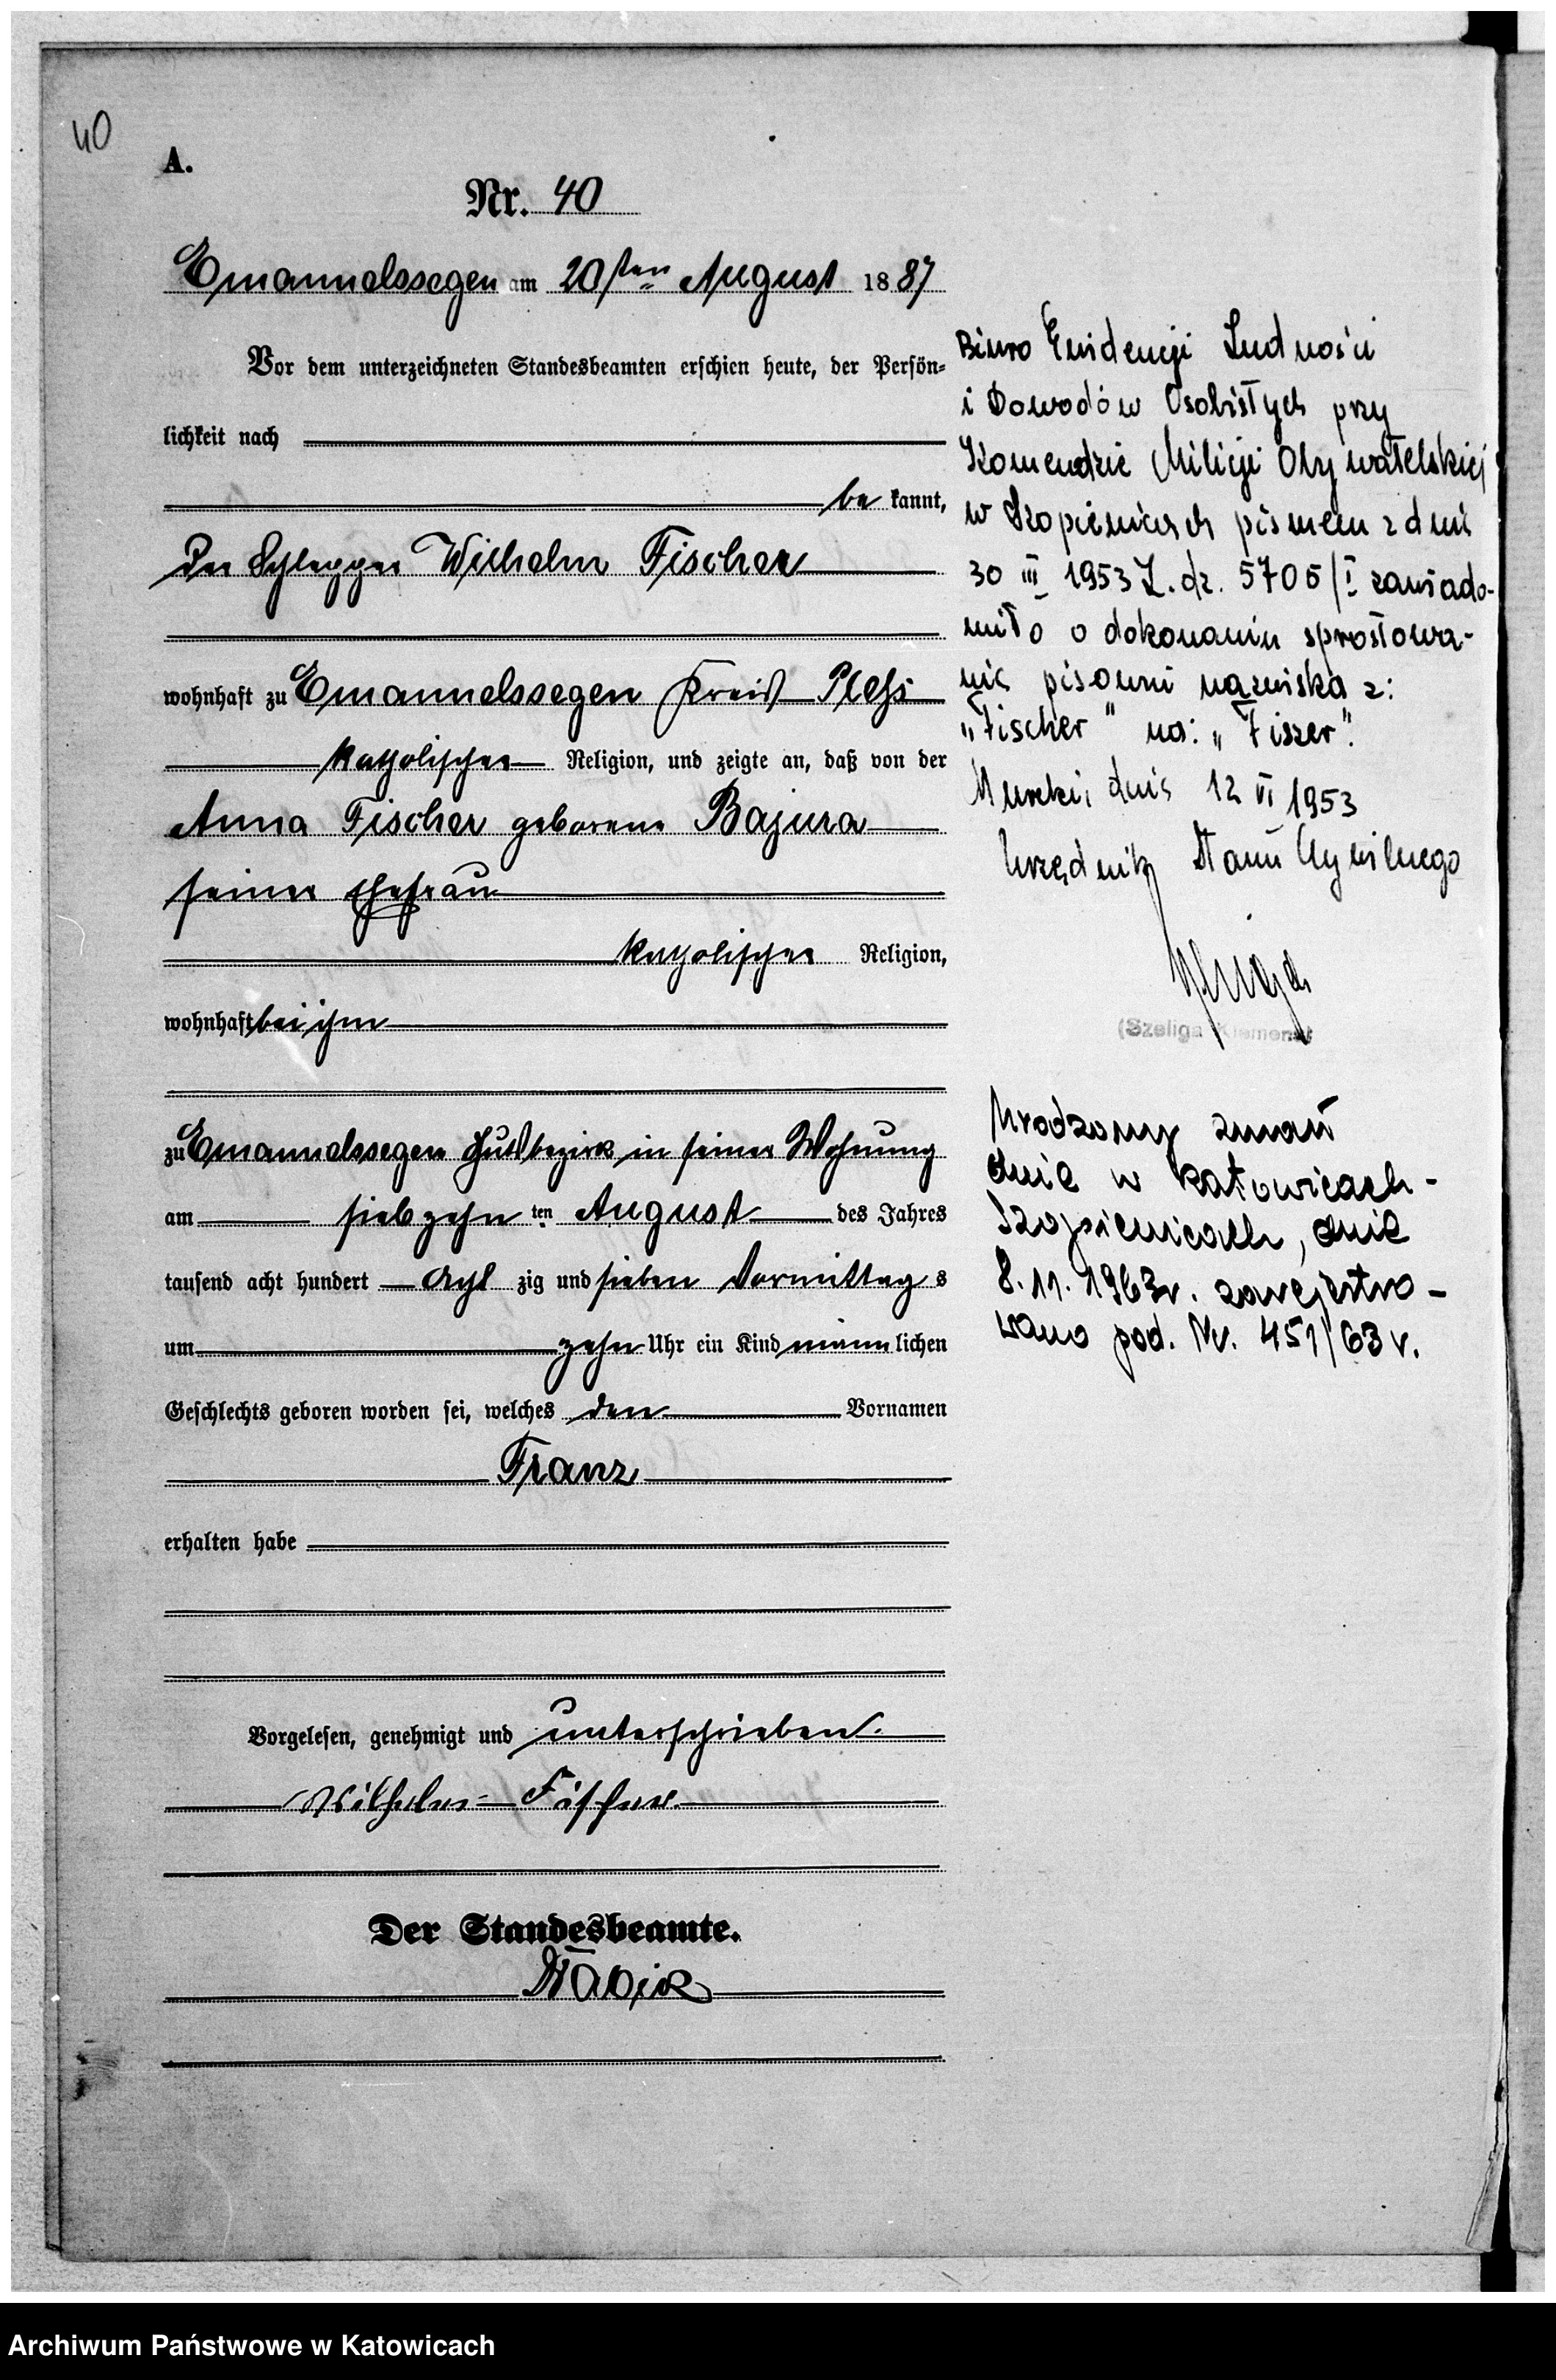 40
A.
Nr. 40
Emanuelssegen am 20ten August 1887
Vor dem unterzeichneten Standesbeamten erschien heute, der Persön-
lichkeit nach
be kannt,
der Schlepper Wilhelm Fischer
wohnhaft zu Emanuelssegen Kreis Pleß
katholischer Religion, und zeigte an, daß von der
Anna Fischer geborene Bajura
seiner Ehefrau
katholischer Religion,
wohnhaft bei ihm
zu Emanuelssegen Gutsbezirk in seiner Wohnung
am siebzehn ten August des Jahres
tausend acht hundert acht zig und sieben Vormittag s
um zehn Uhr ein Kind männ lichen
Geschlechts geboren worden sei, welches den Vornamen
Franz
erhalten habe
Vorgelesen, genehmigt und unterschrieben.
Wilhelm Fischer
Der Standesbeamte.
Biuro Ewidencji Ludności
i Dowodów Osobistych przy
Komendzie Milicji Obywatelskiej
w Szopienicach pismem z dnia
30 III 1953 L. dz. 5705/I zawiado-
miło o dokonaniu sprostowa-
nia pisowni nazwiska z:
"Fischer" na: "Fiszer".
Murcki, dnia 12 VI 1953
Urzędnik Stanu Cywilnego
(Szeliga Klemens)
Urodzony zmarł
dnia w Katowicach-
Szopienicach, dnia
8.11.1963r. zarejestro-
wano pod. Nr. 451/63 r.
Archiwum Państwowe w Katowicach